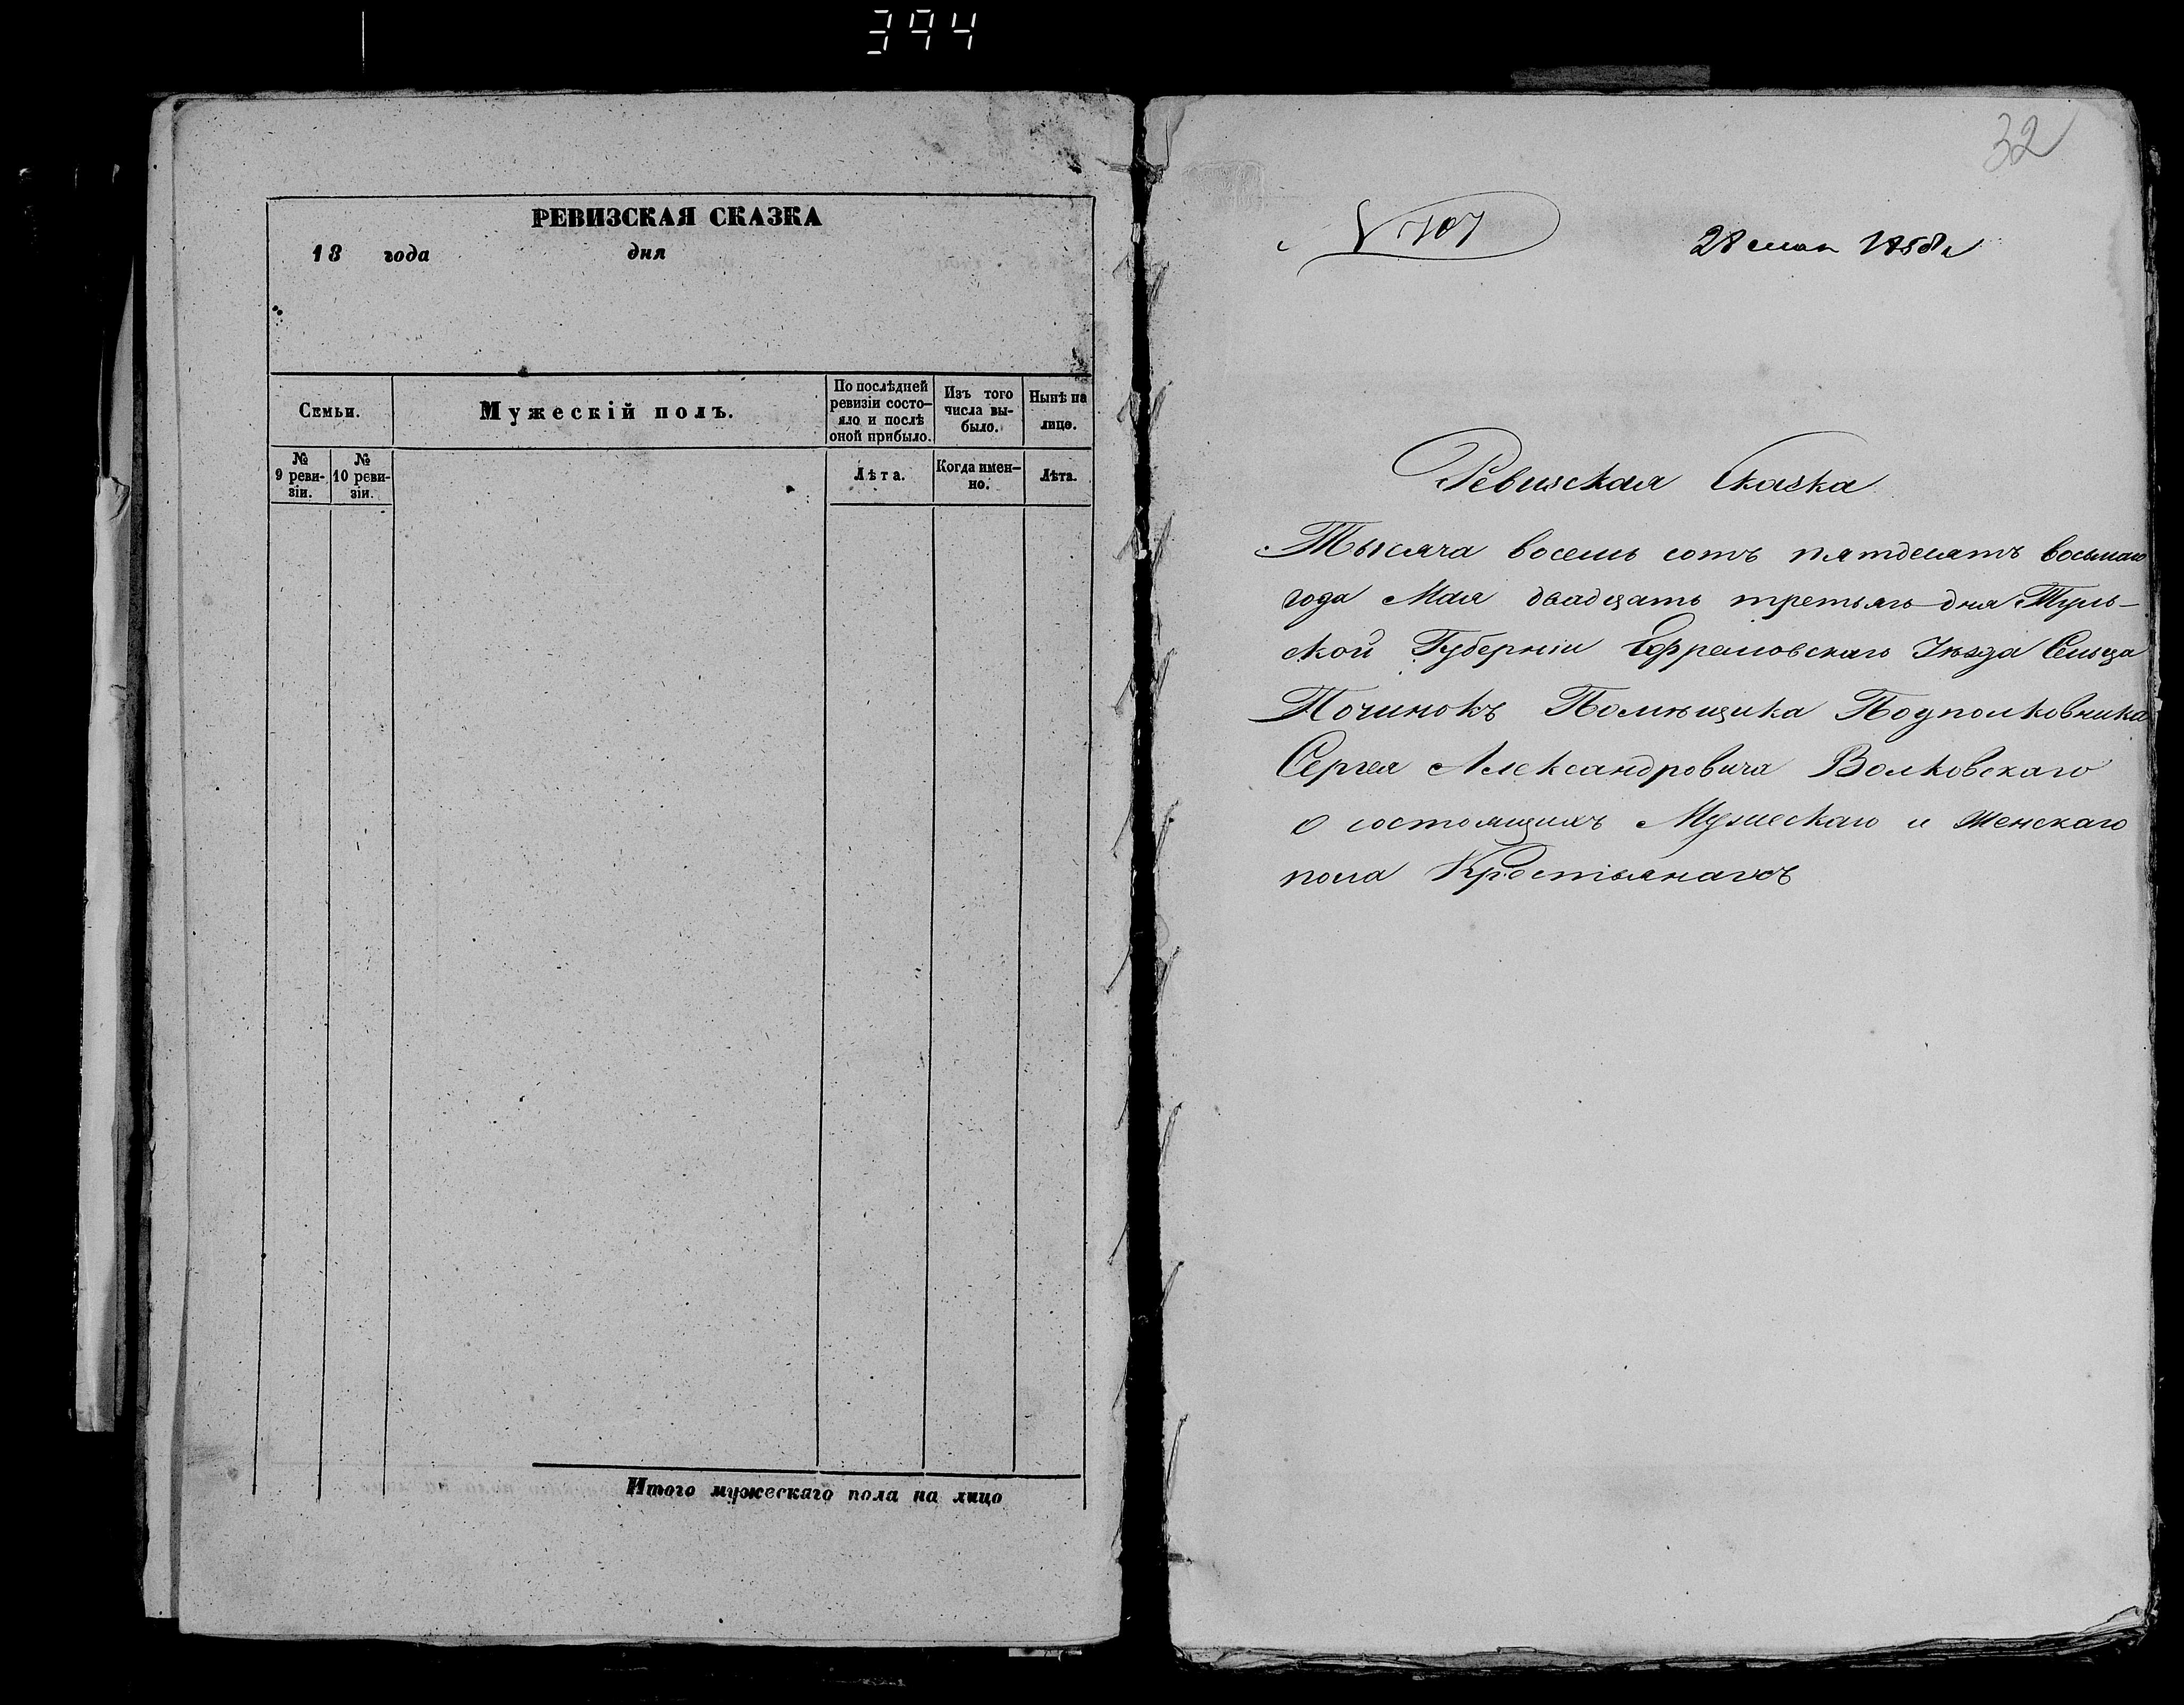 394
РЕВИЗСКАЯ СКАЗКА
18 года дня
Семьи.
Мужескій полъ.
По послѣдней
ревизіи состо-
яло и послѣ
оной прибыло.
Изъ того
числа вы-
было.
Нынѣ на
лицо.
№
9 реви-
зіи.
№
10 реви-
зіи.
Лѣта.
Когда имен-
но.
Лѣта.
Итого мужескаго пола на лицо
32
28 мая 1858 г
Ревизская Сказка
Тысяча восемь сотъ пятдесятъ восьмаго
года Мая двадцать третьяго дня Туль-
ской Губерніи Ефремовскаго Уѣзда Сельца
Починокъ Помѣщика Подполковника
Сергея Александровича Волковскаго
о состоящихъ Мужескаго и Женскаго
пола Крестьянахъ